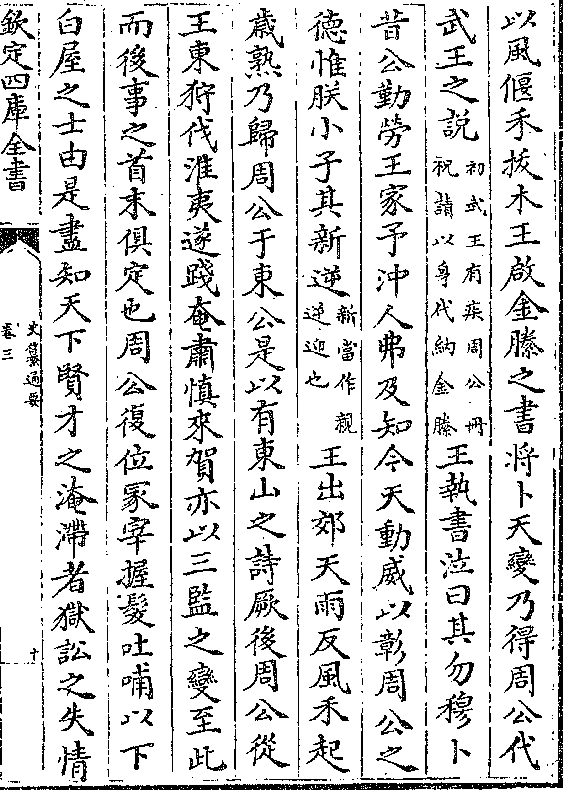 以風偃禾拔木王啟金縢之書將卜天變乃得周公代
武王之説初武王有疾周公冊祝請以身代納金縢王執書泣曰其勿穆卜
昔公勤勞王家予沖人弗及知今天動威以彰周公之
徳惟朕小子其新逆新當作親逆迎也王出郊天雨反風禾起
歲熟乃歸周公于東公是以有東山之詩厥後周公從
王東狩伐淮夷遂踐奄肅慎來賀亦以三監之變至此
而後事之首末俱定也周公復位冢宰握髮吐哺以下
白屋之士由是盡知天下賢才之淹滯者獄訟之失情
欽定四庫全書
史纂通要
卷三
十